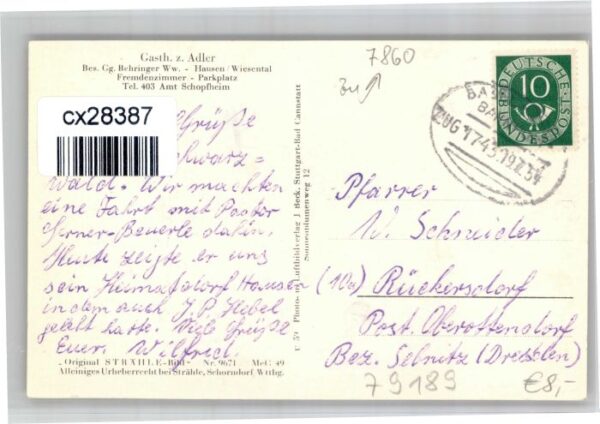 Gasth. z. Adler
Bes. Gg. Behringer Ww. - Hausen/Wiesental
Fremdenzimmer - Parkplatz
Tel. 403 Amt Schopfheim
cx28387
Grüße
schwarz=
wald. Wir machten
eine Fahrt mit Pastor
dahin.
Heute zeigte er uns
sein Heimatdorf Hausen
in dem auch J. P. Hebel
gelebt hatte. Viele Grüße
Euer Wilfried.
„Original STRÄHLE-Bild“ Nr. 9671 McC 49
Alleiniges Urheberrecht bei Strähle, Schorndorf Wttbg.
U 59 Photo- u. Luftbildverlag J. Beck, Stuttgart-Bad Cannstatt
Sonnenblumenweg 12
7860
DEUTSCHE BUNDESPOST
10
ZUG 1743
Pfarrer
W. Schneider
(10a) Rückersdorf
Post. Oberottendorf
Bez. Sebnitz (Dresden)
79189
€8,-